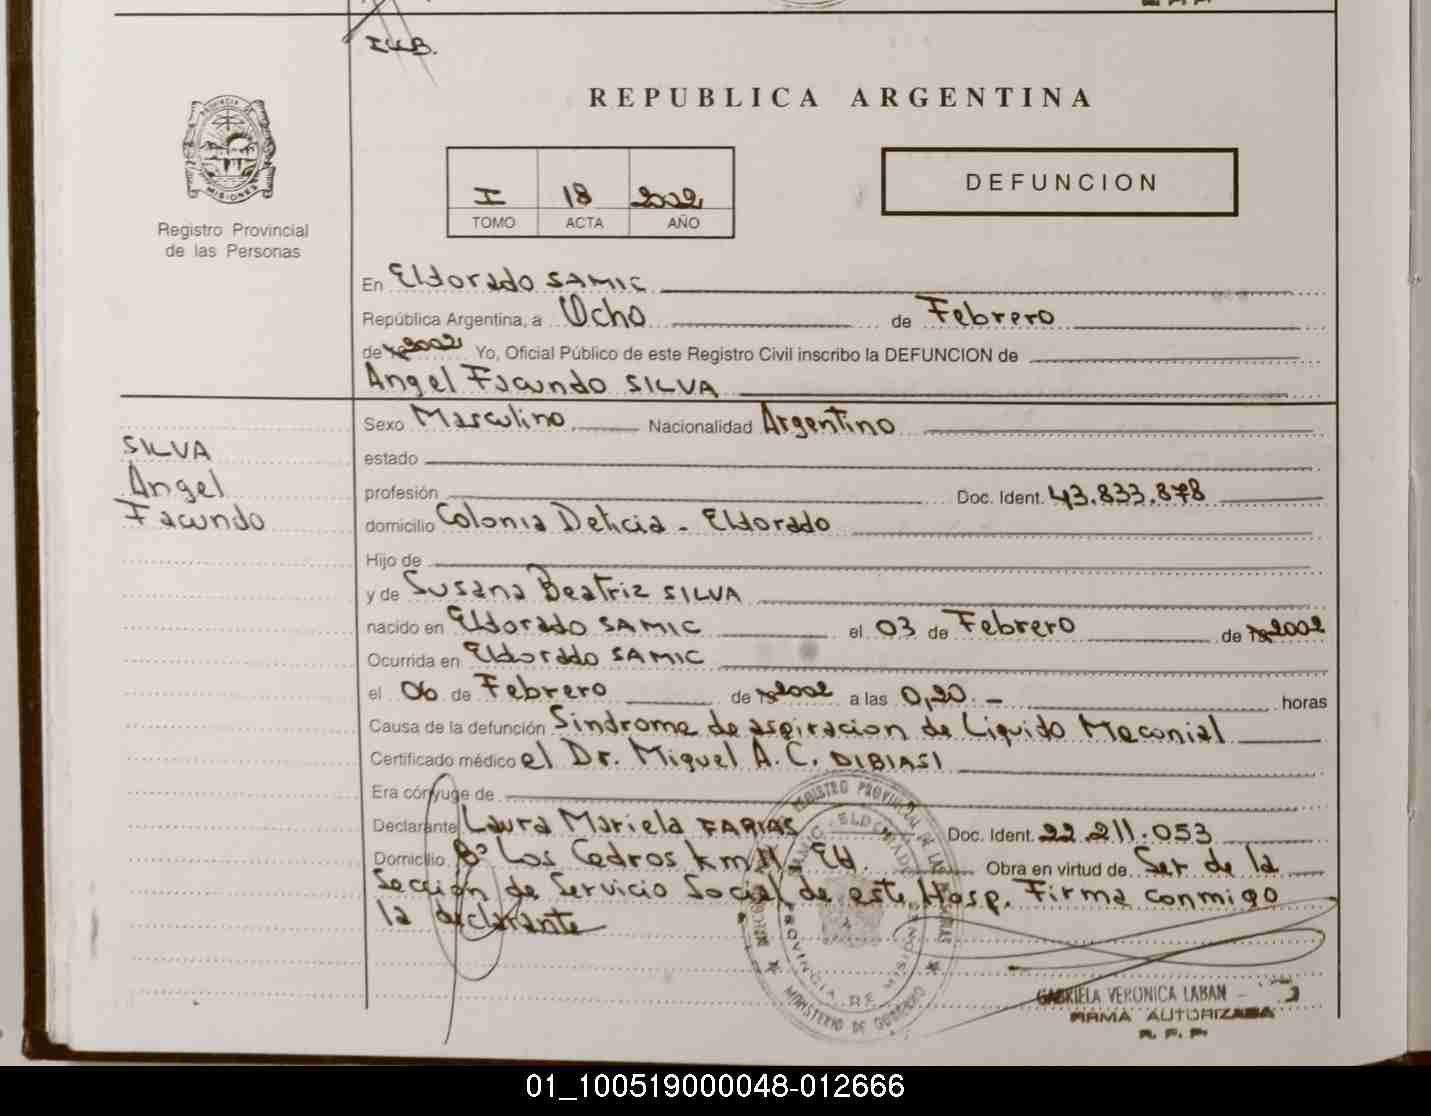 I.U.B.
REPUBLICA ARGENTINA
PROVINCIA DE MISIONES
I 18 2002
TOMO ACTA AÑO
DEFUNCION
Registro Provincial
de las Personas
En Eldorado SAMIC
República Argentina, a Ocho de Febrero
de 2002 Yo, Oficial Público de este Registro Civil inscribo la DEFUNCION de
Angel Facundo SILVA
SILVA
Angel
Facundo
Sexo Masculino Nacionalidad Argentino
estado
profesión Doc. Ident. 43.833.878
domicilio Colonia Delicia - Eldorado
Hijo de
y de Susana Beatriz SILVA
nacido en Eldorado SAMIC el 03 de Febrero de 2002
Ocurrida en Eldorado SAMIC
el 06 de Febrero de 2002 a las 0,20.- horas
Causa de la defunción Sindrome de aspiracion de Liquido Meconial
Certificado médico el Dr. Miguel A. C. DIBIASI
Era cónyuge de
Declarante Laura Mariela FARIAS Doc. Ident. 22.211.053
Domicilio Bº Los Cedros km 11. Eld. Obra en virtud de Ser de la
Sección de Servicio Social de este Hosp. Firma conmigo
la declarante
REGISTRO PROVINCIAL DE LAS PERSONAS
SAMIC - ELDORADO
PROVINCIA DE MISIONES
MINISTERIO DE GOBIERNO
GABRIELA VERONICA LABAN
FIRMA AUTORIZADA
R. P. P.
01_100519000048-012666